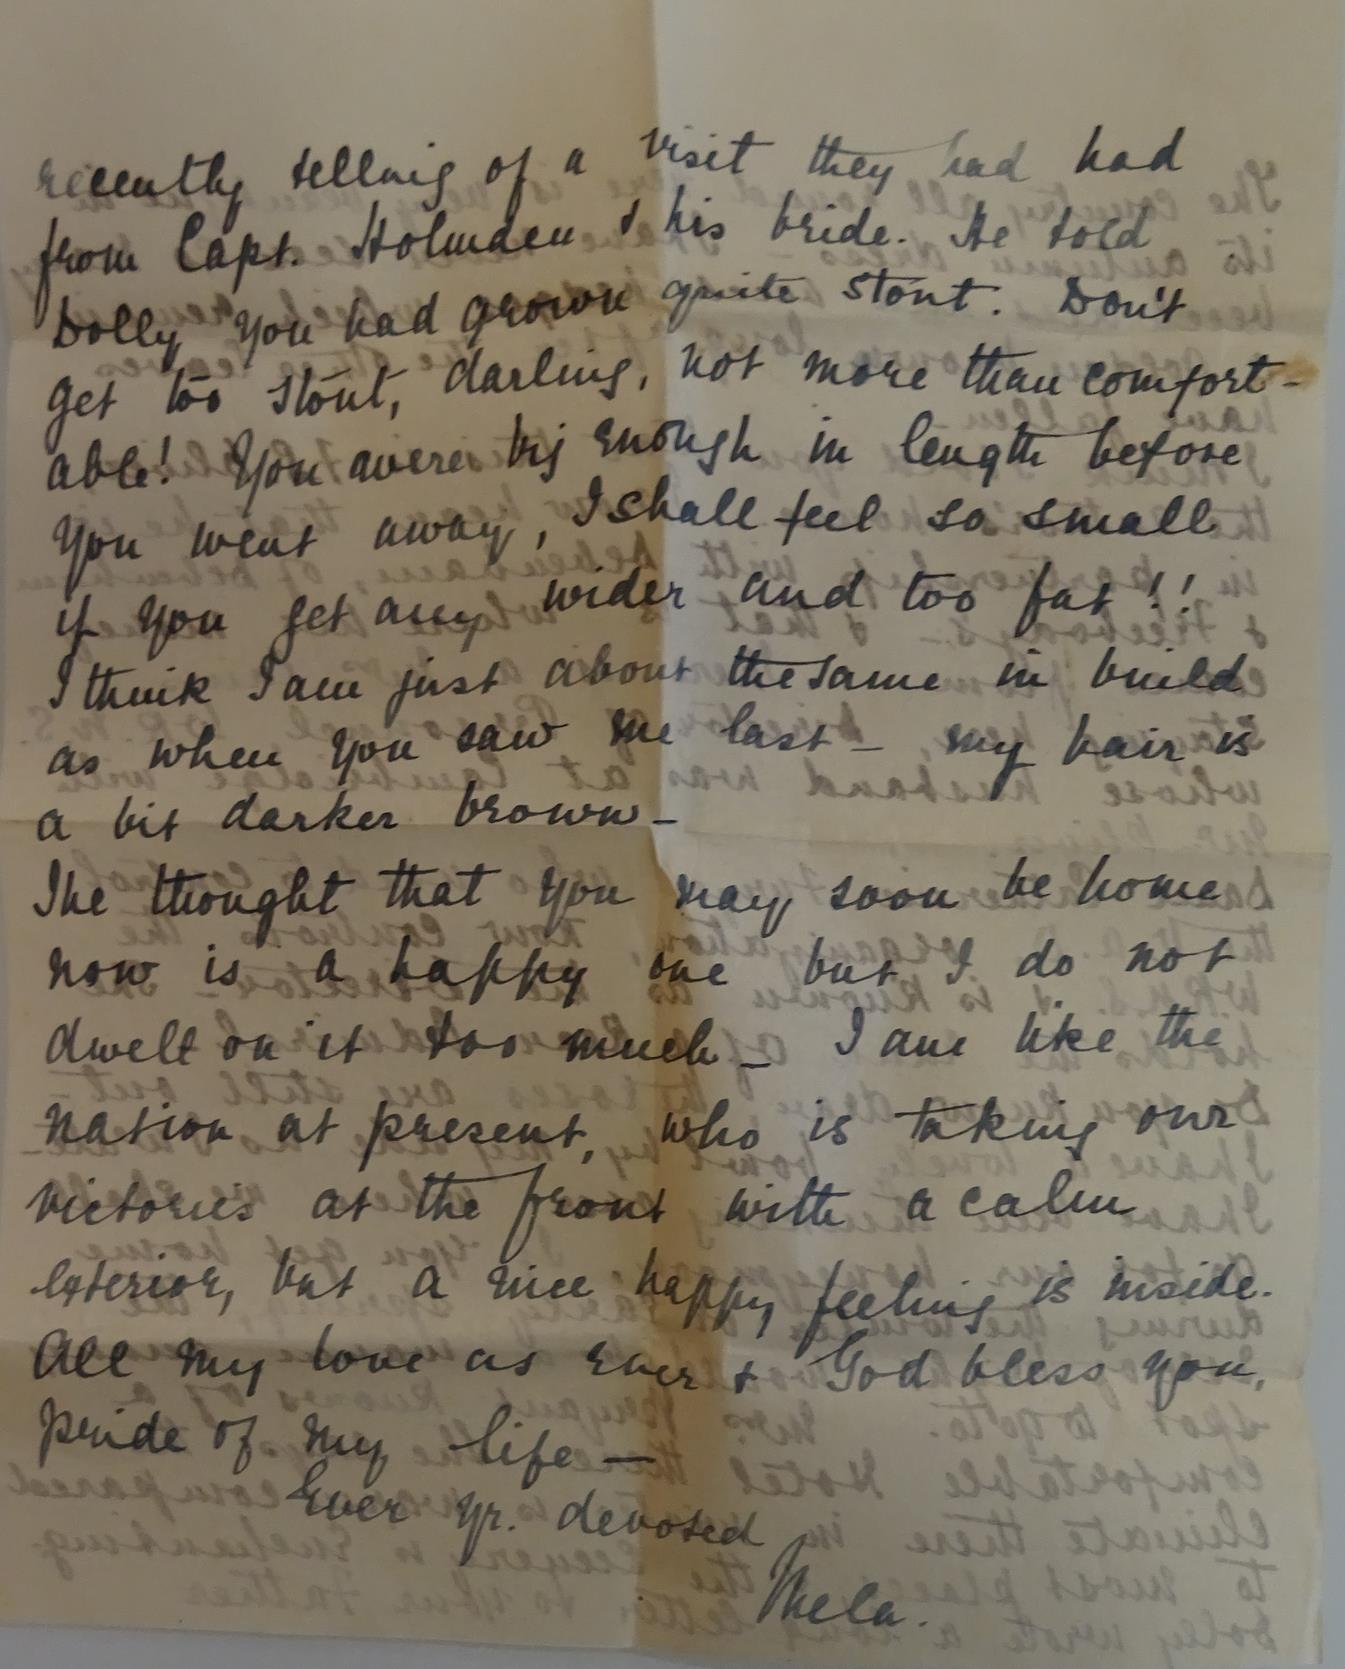 recently telling of a visit they had had
from Capt. Holmden & his bride. He told
Dolly you had grown quite stout. Don't
get too stout, darling, not more than comfort-
able! You were big enough in length before
you went away, I shall feel so small
if you get any wider and too fat!!
I think I am just about the same in build
as when you saw me last - my hair is
a bit darker brown -
The thought that you may soon be home
now is a happy one but I do not
dwell on it too much - I am like the
nation at present, who is taking our
victories at the front with a calm
exterior, but a nice happy feeling is inside.
All my love as ever & God bless you,
pride of my life -
Ever yr. devoted